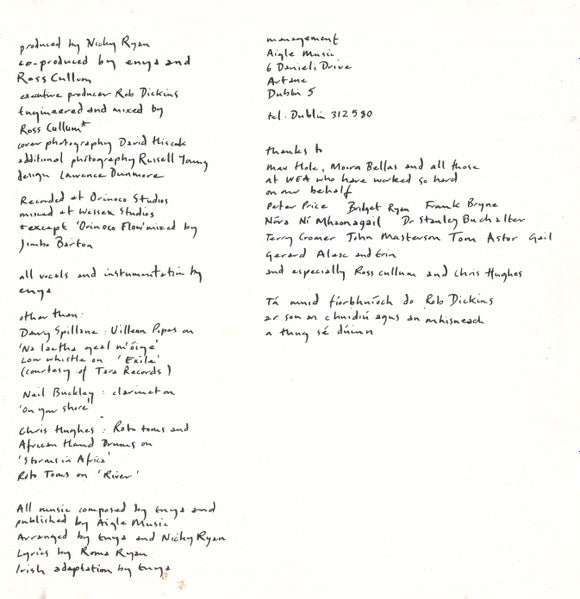 produced by Nicky Ryan
co-produced by enya and
Ross Cullum
executive producer Rob Dickins
Engineered and mixed by
Ross Cullum*
cover photography David Hiscock
additional photography Russell Young
design Lawrence Dunmore
Recorded at Orinoco Studios
mixed at Wessex Studios
*except 'Orinoco Flow' mixed by
Jimbo Barton
all vocals and instumentation by
enya
other than:
Davy Spillane : Uillean Pipes on
'Na laetha geal m'óige'
Low whistle on 'Exile'
(courtesy of Tara Records)
Neil Buckley : clarinet on
'On your shore'
Chris Hughes : Roto toms and
African Hand Drums on
'Storms in Africa'
Roto Toms on 'River'
All music composed by Enya and
published by Aigle Music
Arranged by Enya and Nicky Ryan
Lyrics by Roma Ryan
Irish adaptation by Enya
management
Aigle Music
6 Danieli Drive
Artane
Dublin 5
tel. Dublin 312580
thanks to
Max Hole, Moira Bellas and all those
at WEA who have worked so hard
on our behalf
Peter Price Bridget Ryan Frank Bryne
Nóra Ní Mhaonagail Dr Stanley Buchalter
Terry Cromer John Masterson Tom Astor Gail
Gerard Alasc and Erin
and especially Ross Cullum and Chris Hughes
Tá muid fíorbhuíoch do Rob Dickins
ar son an chuidiú agus an mhisneach
a thug sé dúinn